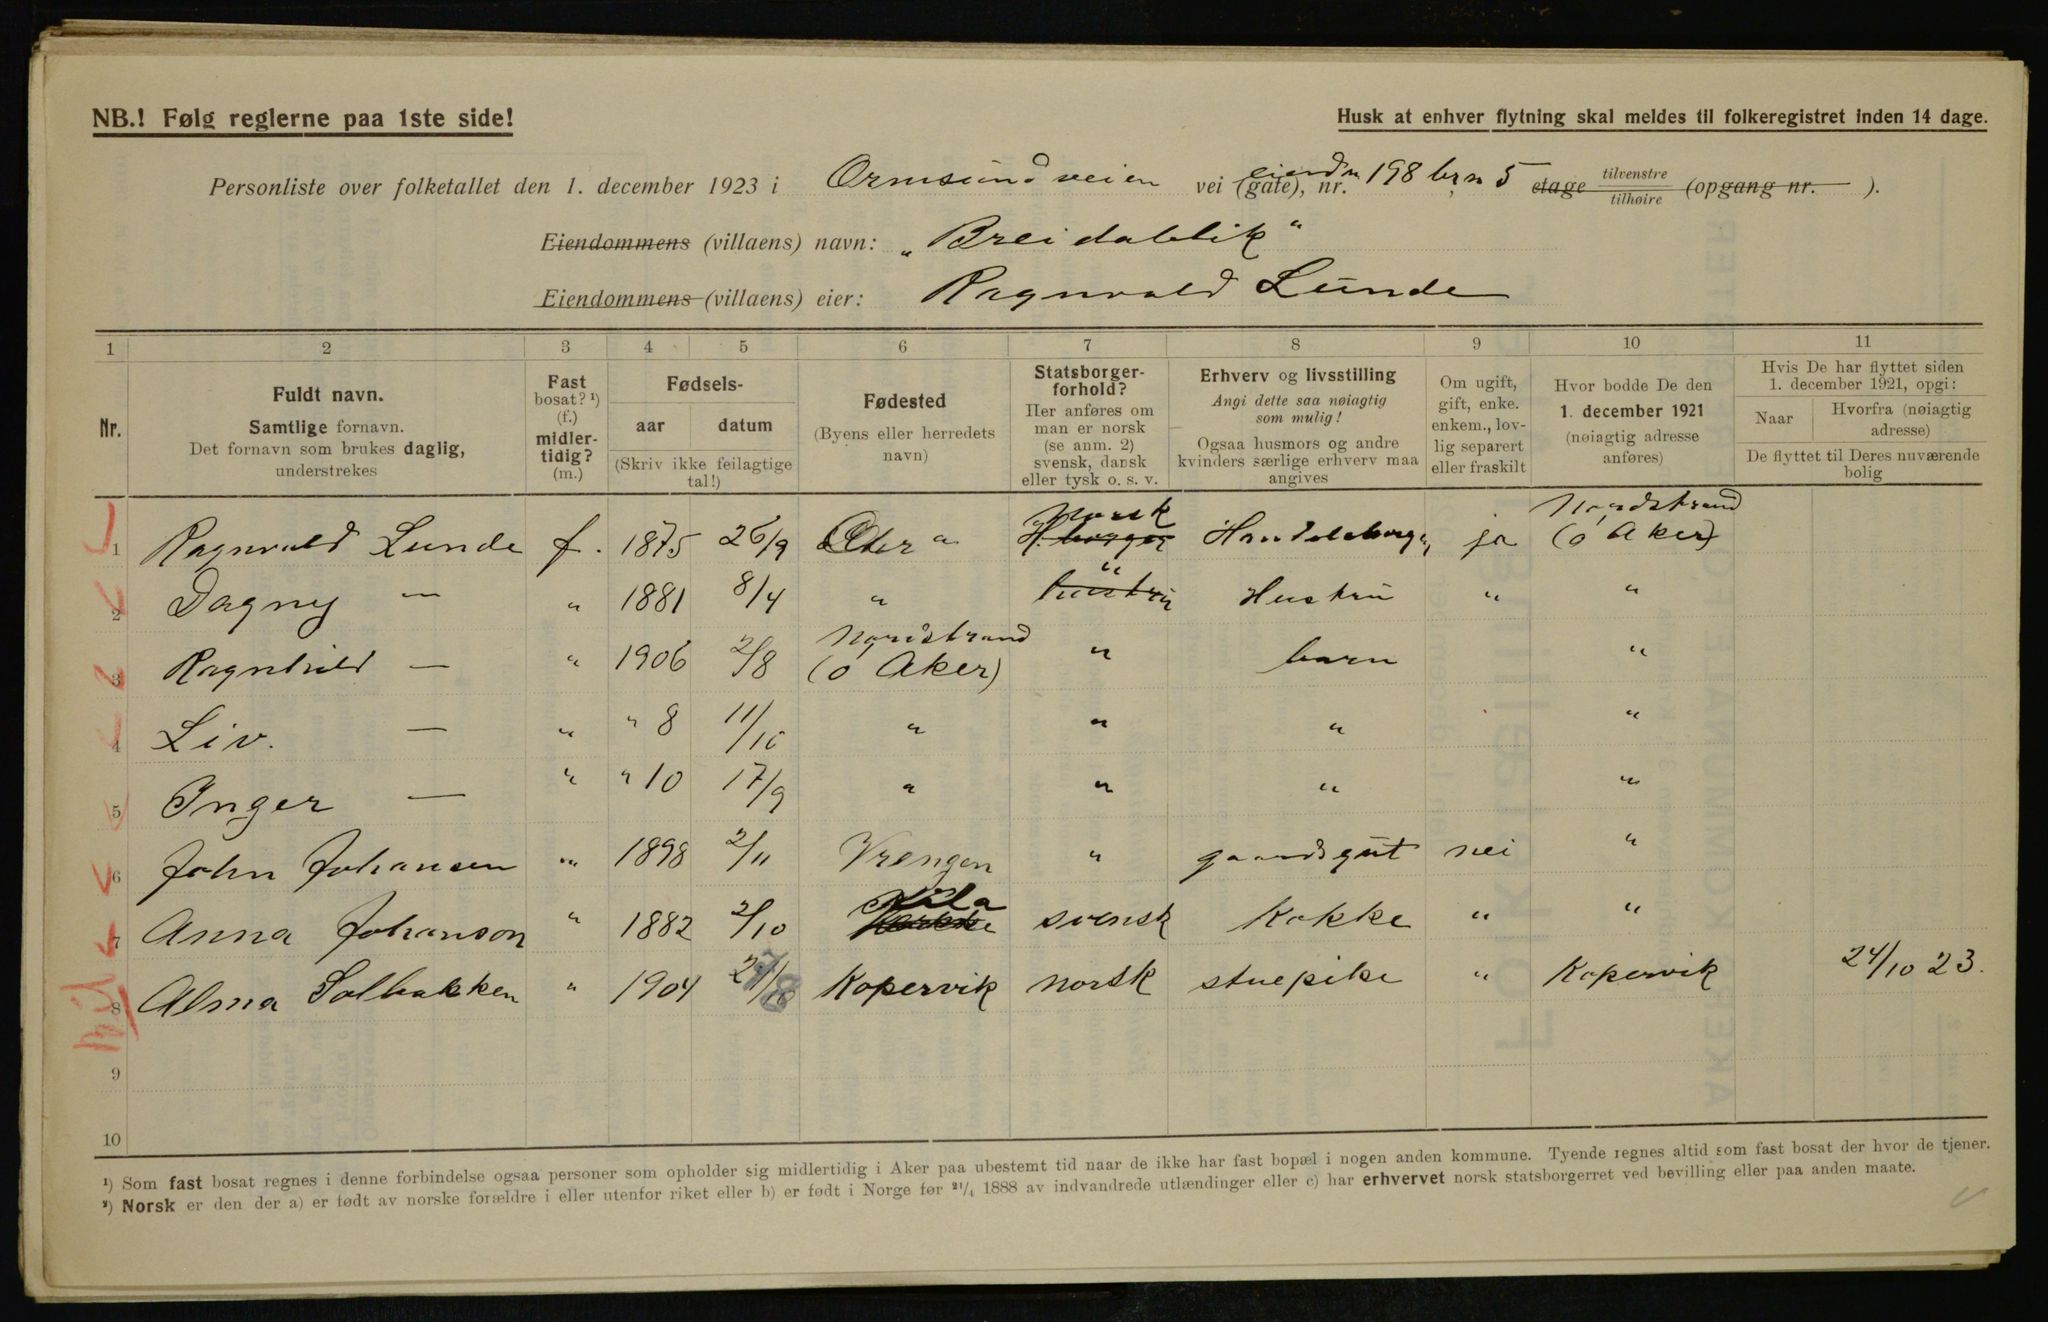 NB.! Følg reglerne paa 1ste side!
Husk at enhver flytning skal meldes til folkeregistret inden 14 dage.
Personliste over folketallet den 1. december 1923 i Ormsundveien vei (gate), nr. 198 br n 5 etage tilvenstre tilhøire (opgang nr. ).
Eiendommens (villaens) navn: „Breidablik"
Eiendommens (villaens) eier: Ragnvald Lunde
1 2 3 4 5 6 7 8 9 10 11
Nr.
Fuldt navn.
Samtlige fornavn.
Det fornavn som brukes daglig,
understrekes
Fast
bosat? ¹)
(f.)
midler-
tidig?
(m.)
Fødsels-
aar datum
(Skriv ikke feilagtige
tal!)
Fødested
(Byens eller herredets
navn)
Statsborger-
forhold?
Her anføres om
man er norsk
(se anm. 2)
svensk, dansk
eller tysk o. s. v.
Erhverv og livsstilling
Angi dette saa nøiagtig
som mulig!
Ogsaa husmors og andre
kvinders særlige erhverv maa
angives
Om ugift,
gift, enke.
enkem., lov-
lig separert
eller fraskilt
Hvor bodde De den
1. december 1921
(nøiagtig adresse
anføres)
Hvis De har flyttet siden
1. december 1921, opgi:
Naar Hvorfra (nøiagtig
adresse)
De flyttet til Deres nuværende
bolig
1 Ragnvald Lunde f. 1875 26/9 " norsk H. borger Handelsborger ja Nordstrand (ö Aker)
2 Dagny — " 1881 8/4 " " hustru Hustru " "
3 Ragnhild — " 1906 2/8 Nordstrand (ö Aker) " barn "
4 Liv. — " " 8 11/10 " " " "
5 Inger — " " 10 17/9 " " " "
6 John Johansen " 1898 2/11 Vrengen " gaardsgut nei "
7 Anna Johanson " 1882 2/10 svensk Kokke " "
8 Alma Solbakken " 1904 Kopervik norsk stuepike " Kopervik 24/10 23.
9
10
¹) Som fast bosat regnes i denne forbindelse ogsaa personer som opholder sig midlertidig i Aker paa ubestemt tid naar de ikke har fast bopæl i nogen anden kommune. Tyende regnes altid som fast bosat der hvor de tjener.
²) Norsk er den der a) er født av norske forældre i eller utenfor riket eller b) er født i Norge før ²¹/₄ 1888 av indvandrede utlændinger eller c) har erhvervet norsk statsborgerret ved bevilling eller paa anden maate.